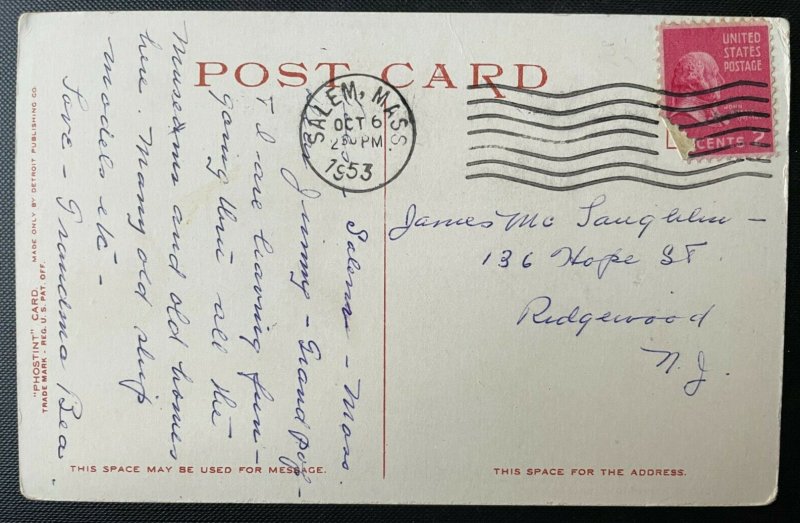 POST CARD
UNITED
STATES
POSTAGE
CENTS 2
SALEM, MASS
OCT 6
2 30 PM
1953
Salem - Mass.
Dear Jimmy - Grandpop -
+ I are having fun -
going thru all the
Museums and old homes
here Many old ship
models etc -
Love - Grandma Bea
James Mc Laughlin -
136 Hope St
Ridgewood
N.J.
"PHOSTINT" CARD. MADE ONLY BY DETROIT PUBLISHING CO.
TRADE MARK - REG. U.S. PAT. OFF.
THIS SPACE MAY BE USED FOR MESSAGE.
THIS SPACE FOR THE ADDRESS.